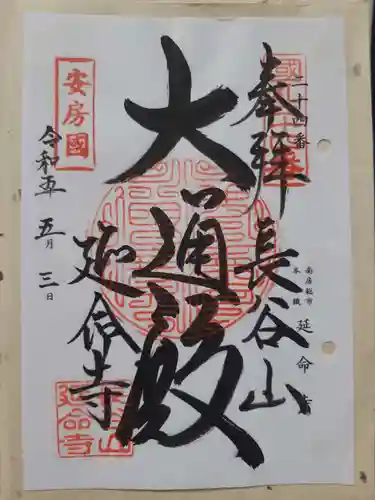 奉拝
二十四番
長谷山
南房総市
本織
延命寺
大通殿
延命寺
安房國
令和五年
五月
三日
延命寺